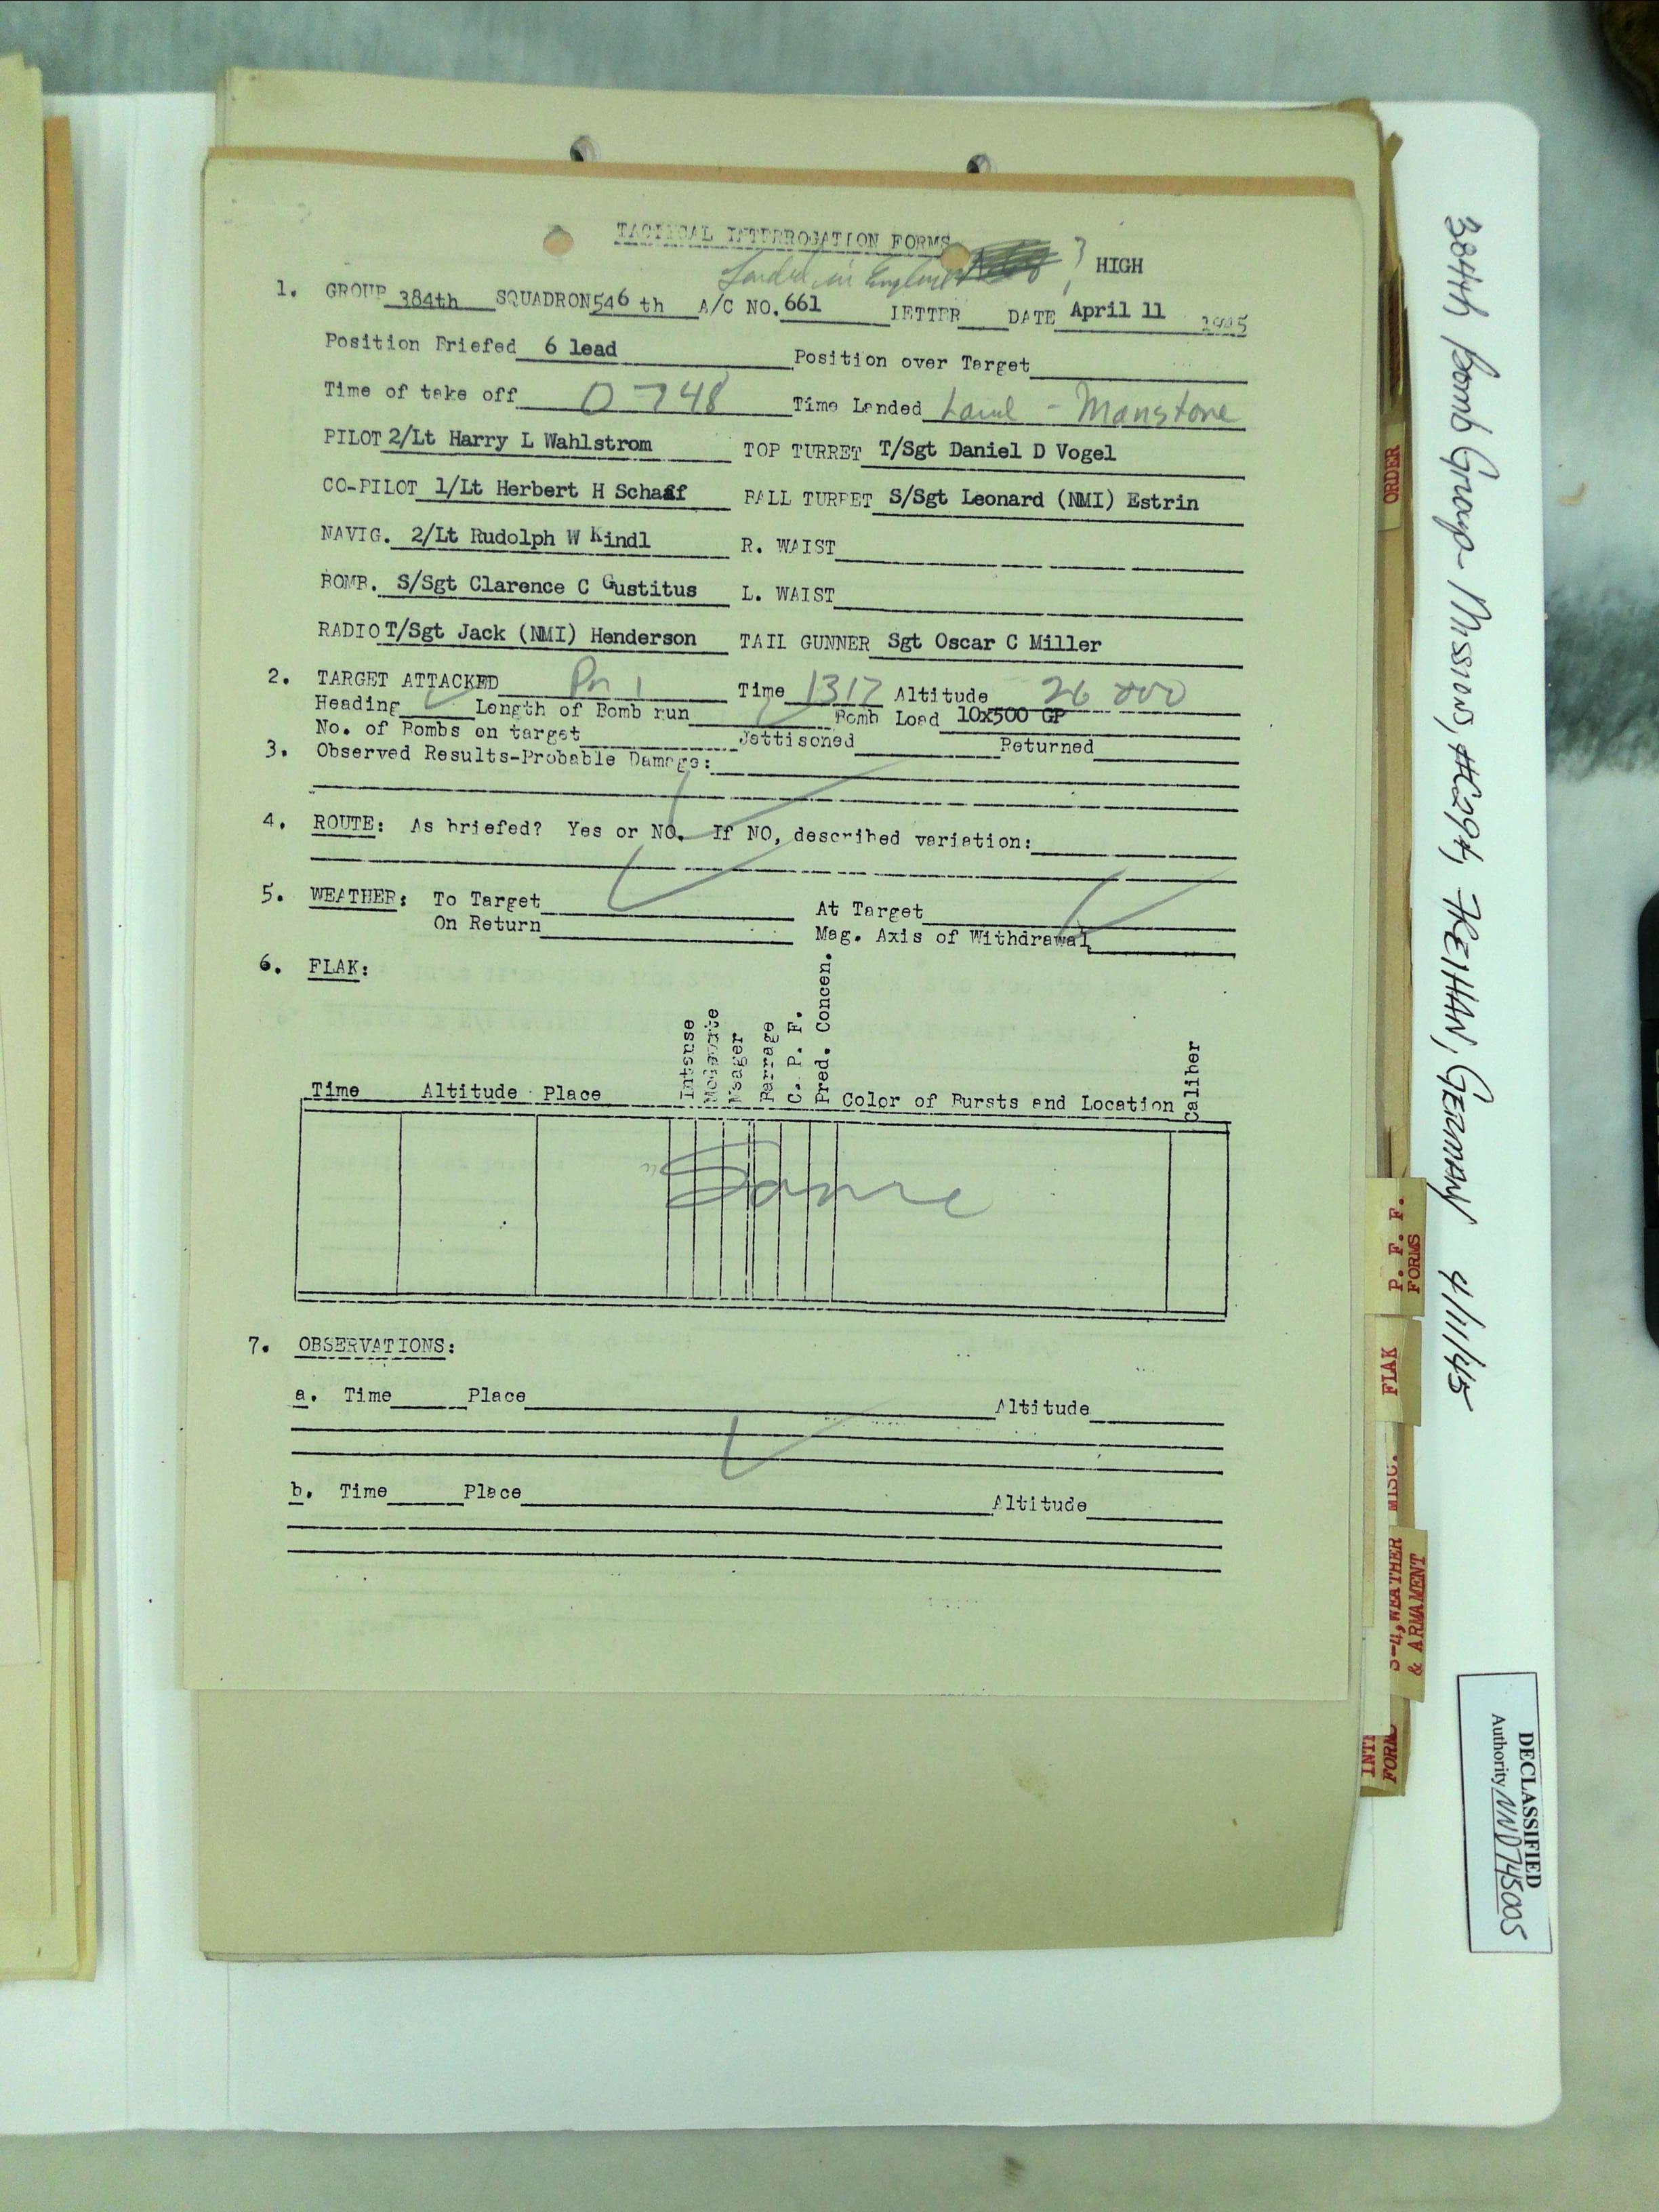 TACTICAL INTERROGATION FORMS
Landed in England ? HIGH
1. GROUP 384th SQUADRON 546 th A/C NO. 661 LETTER DATE April 11 1945
Position Briefed 6 lead Position over Target
Time of take off 0748 Time Landed Land - Manstone
PILOT 2/Lt Harry L Wahlstrom TOP TURRET T/Sgt Daniel D Vogel
CO-PILOT 1/Lt Herbert H Schaaf BALL TURRET S/Sgt Leonard (NMI) Estrin
NAVIG. 2/Lt Rudolph W Kindl R. WAIST
BOMB. S/Sgt Clarence C Gustitus L. WAIST
RADIO T/Sgt Jack (NMI) Henderson TAIL GUNNER Sgt Oscar C Miller
2. TARGET ATTACKED Pn 1 Time 1317 Altitude 26 000
Heading Length of Bomb run Bomb Load 10x500 GP
No. of Bombs on target Jettisoned Returned
3. Observed Results-Probable Damage:
4. ROUTE: As briefed? Yes or NO. If NO, described variation:
5. WEATHER: To Target At Target
On Return Mag. Axis of Withdrawal
6. FLAK:
Time Altitude Place Intense Moderate Meager Barrage C. P. F. Pred. Concen. Color of Bursts and Location Caliber
Same
7. OBSERVATIONS:
a. Time Place Altitude
b. Time Place Altitude
ORDER
P. F. F.
FORMS
FLAK
MISC.
S-4, WEATHER
& ARMAMENT
FORMS
384th Bomb Group Missions, #294, FREIHAN, GERMANY 4/11/45
DECLASSIFIED
Authority NND745005